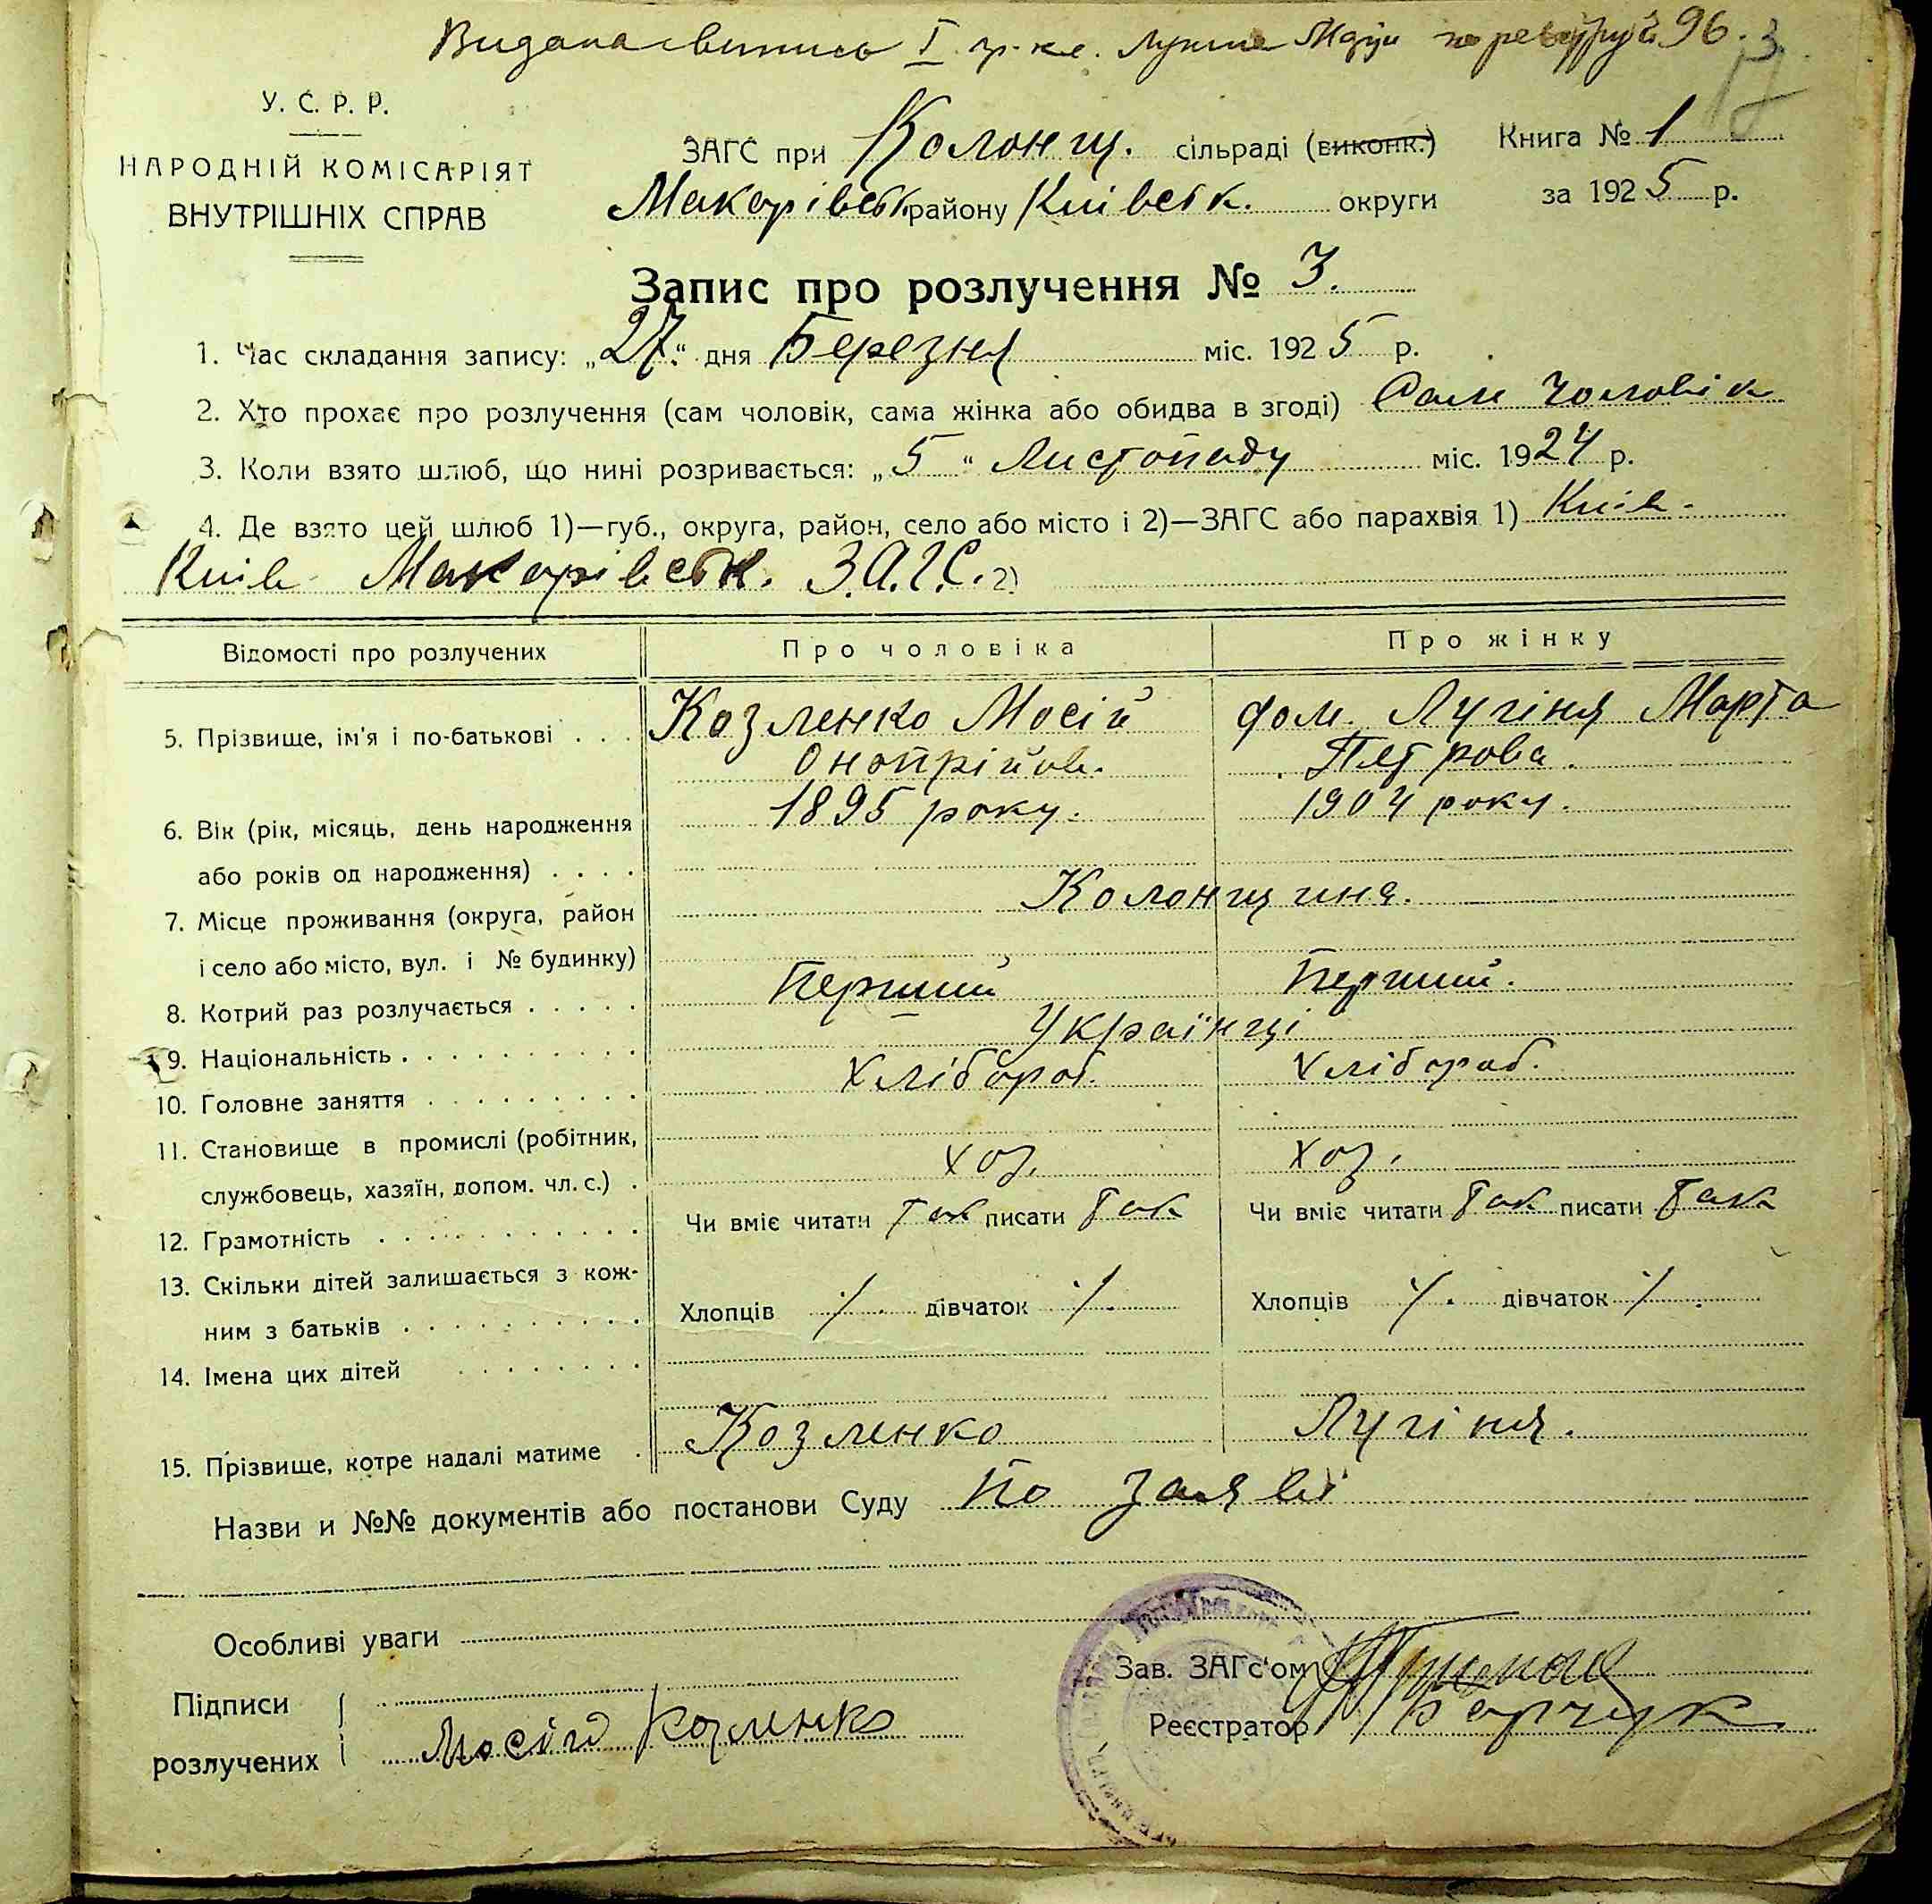 Видана випись І
У. С. Р. Р.
НАРОДНІЙ КОМІСАРІЯТ
ВНУТРІШНІХ СПРАВ
ЗАГС при Колонщ. сільраді (виконк.) Книга № 1
Макарівськ. району Київськ. округи за 1925 р.
Запис про розлучення № 3.
1. Час складання запису: „27“ дня Березня міс. 1925 р.
2. Хто прохає про розлучення (сам чоловік, сама жінка або обидва в згоді) Сам чоловік
3. Коли взято шлюб, що нині розривається: „5“ Листопаду міс. 1924 р.
4. Де взято цей шлюб 1)—губ., округа, район, село або місто і 2)—ЗАГС або парахвія 1) Київ.
Київ Макарівськ. З.А.Г.С. 2)
Відомості про розлучених Про чоловіка Про жінку
5. Прізвище, ім'я і по-батькові . . . Козленко Мосій дом. Лугіня Марта
Онопрійов. Петрова.
6. Вік (рік, місяць, день народження 1895 року. 1904 року.
або років од народження) . . . .
7. Місце проживання (округа, район Колонщина.
і село або місто, вул. і № будинку)
8. Котрий раз розлучається . . . . . Перший Перший.
9. Національність . . . . . . . . . . Українці
10. Головне заняття . . . . . . . . . Хлібороб. Хлібороб.
11. Становище в промислі (робітник,
службовець, хазяїн, допом. чл. с.) . хоз. хоз.
12. Грамотність . . . . . . . . . . . Чи вміє читати так писати так Чи вміє читати так писати так
13. Скільки дітей залишається з кож-
ним з батьків . . . . . . . . . . Хлопців ·/. дівчаток ·/. Хлопців ·/. дівчаток ·/.
14. Імена цих дітей . . . . . . . .
15. Прізвище, котре надалі матиме . Козленко Лугіня.
Назви и №№ документів або постанови Суду По заяві
Особливі уваги
Підписи
розлучених Мосій Козленко
Зав. ЗАГс'ом
Реєстратор